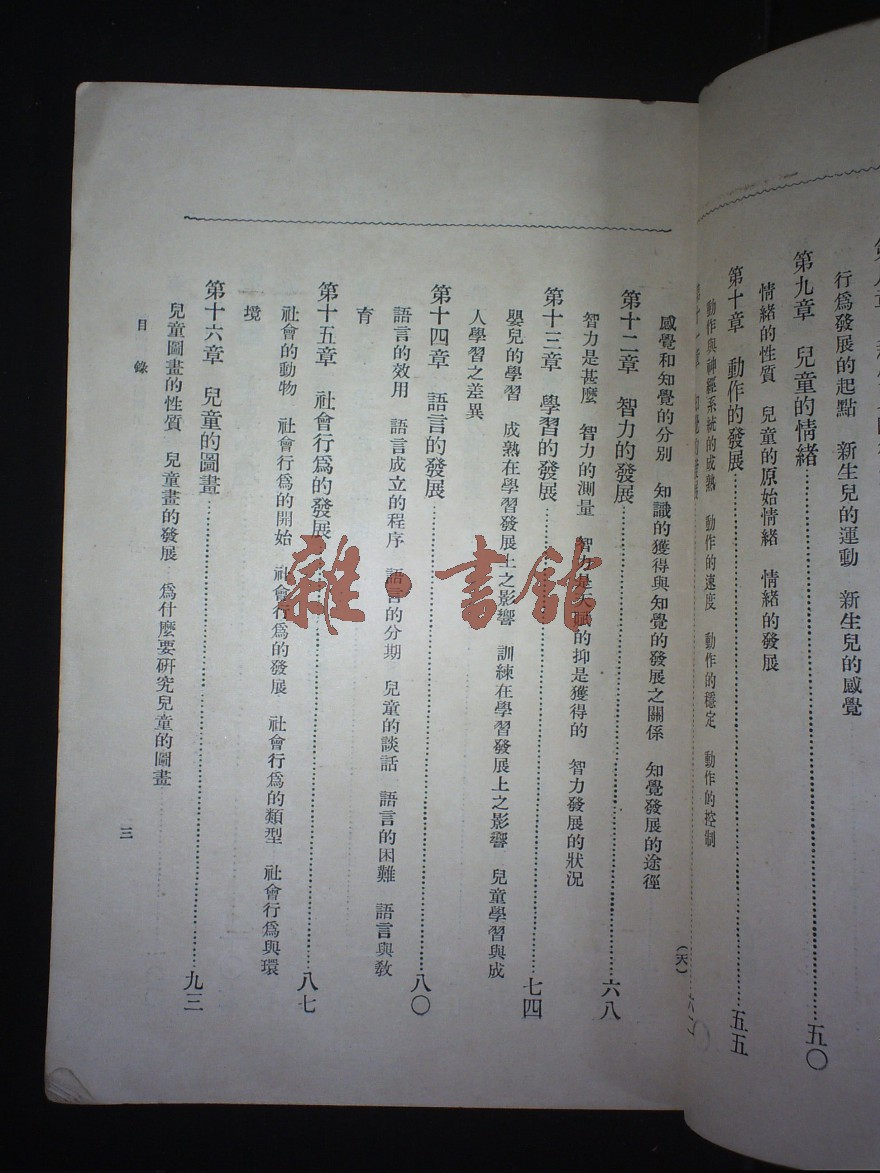 行爲發展的起點　新生兒的運動　新生兒的感覺
第九章　兒童的情緒……五〇
情緒的性質　兒童的原始情緒　情緒的發展
第十章　動作的發展……五五
動作與神經系統的成熟　動作的速度　動作的穩定　動作的控制
感覺和知覺的分別　知識的獲得與知覺的發展之關係　知覺發展的途徑
第十二章　智力的發展……六八
智力是甚麽　智力的測量　智力是天賦的抑是獲得的　智力發展的狀況
第十三章　學習的發展……七四
嬰兒的學習　成熟在學習發展上之影響　訓練在學習發展上之影響　兒童學習與成
人學習之差異
第十四章　語言的發展……八〇
語言的效用　語言成立的程序　語言的分期　兒童的談話　語言的困難　語言與教
育
第十五章　社會行爲的發展……八七
社會的動物　社會行爲的開始　社會行爲的發展　社會行爲的類型　社會行爲與環
境
第十六章　兒童的圖畫……九三
兒童圖畫的性質　兒童畫的發展　爲什麽要研究兒童的圖畫
目錄
三
(天)
雜·書館